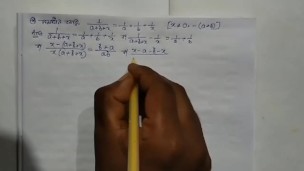 সমাধান করো: 1/(a+b+x) = 1/a + 1/b + 1/x [x ≠ 0, -(a+b)]
1/(a+b+x) = 1/a + 1/b + 1/x বা 1/(a+b+x) - 1/x = 1/a + 1/b
বা (x-(a+b+x))/(x(a+b+x)) = (b+a)/(ab) বা x-a-b-x